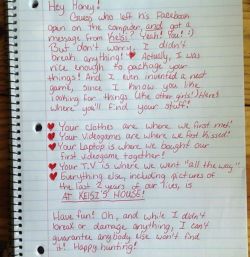 Hey Honey!
Guess who left his Facebook
open on the computer, and got a
message from Keisi? Yeah! You! :)
But don't worry, I didn't
break anything! ♥ Actually, I was
nice enough to package your
things! And I even invented a neat
game, since I know you like
looking for things like other girls! Here's
where you'll find your stuff!
♥ Your clothes are where we first met!
♥ Your videogames are where we first kissed!
♥ Your laptop is where we bought our
first videogame together!
♥ Your T.V is where we went "all the way"
♥ Everything else, including pictures of
the last 2 years of our lives, is
AT KEISI'S HOUSE!
Have fun! Oh, and while I didn't
break or damage anything, I can't
guarantee anybody else won't find
it! Happy hunting!